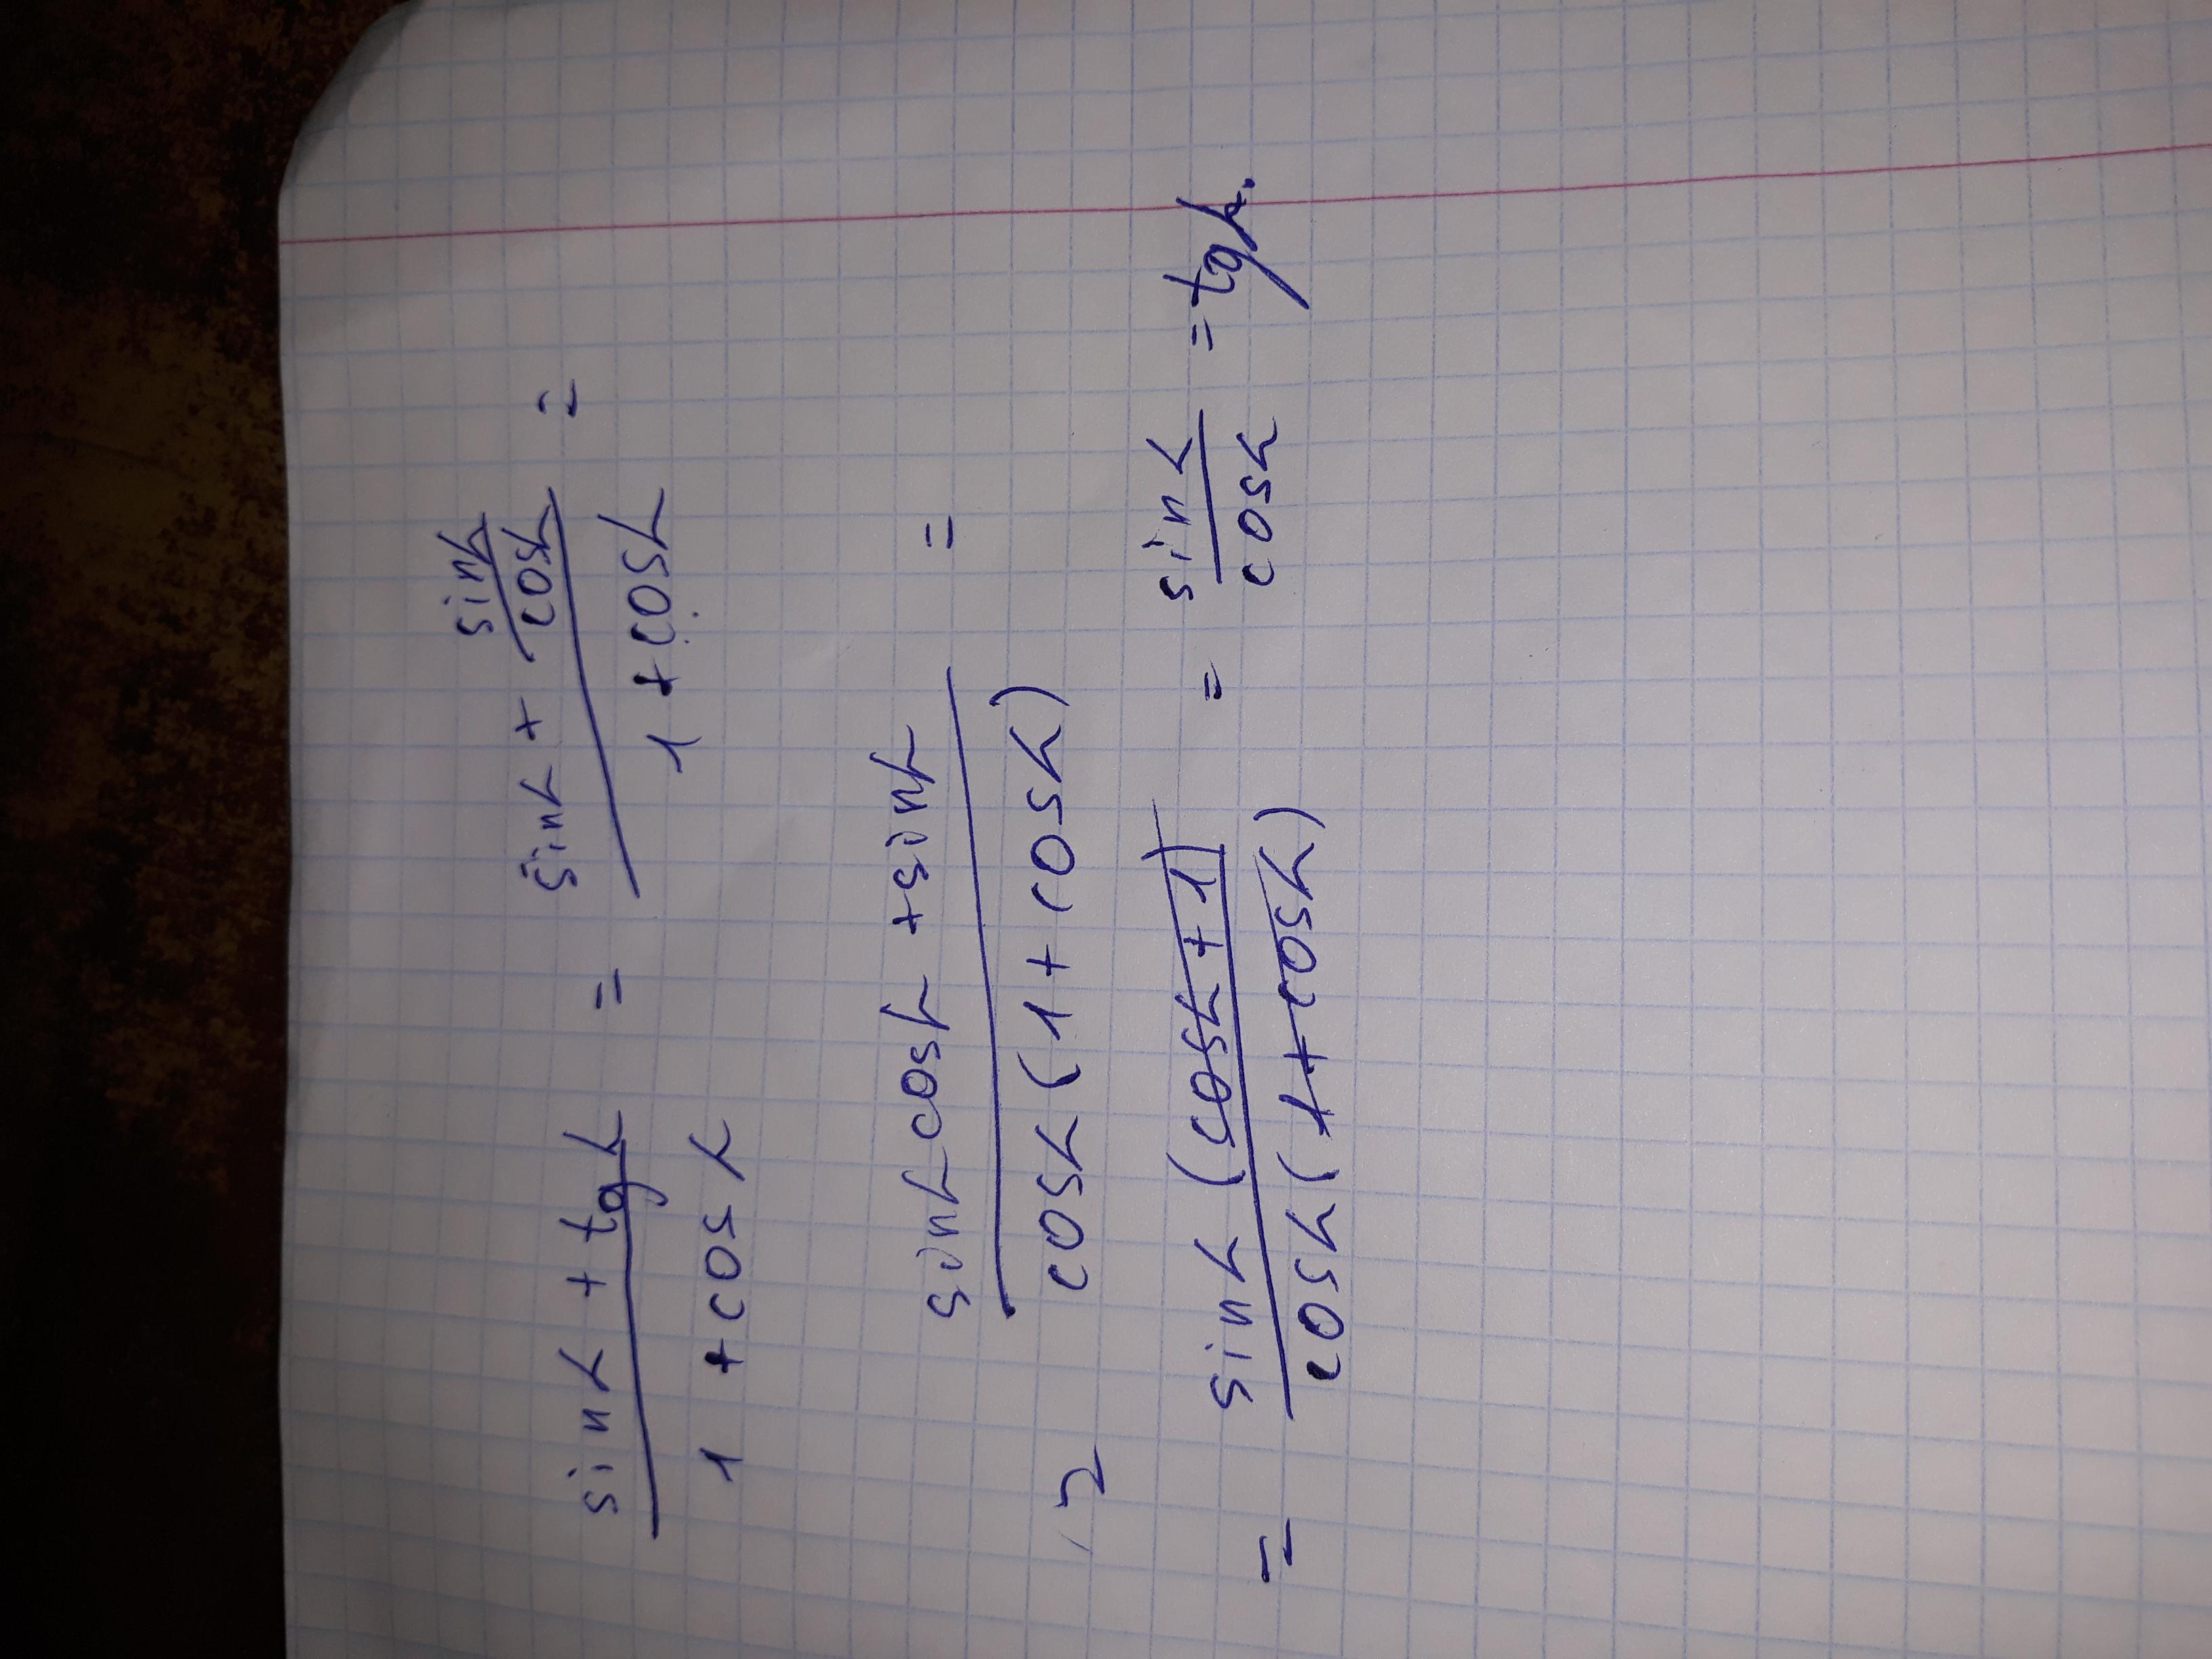 (sin α + tg α) / (1 + cos α) = (sin α + sin α / cos α) / (1 + cos α) =
= (sin α cos α + sin α) / (cos α (1 + cos α)) =
= (sin α (cos α + 1)) / (cos α (1 + cos α)) = sin α / cos α = tg α.